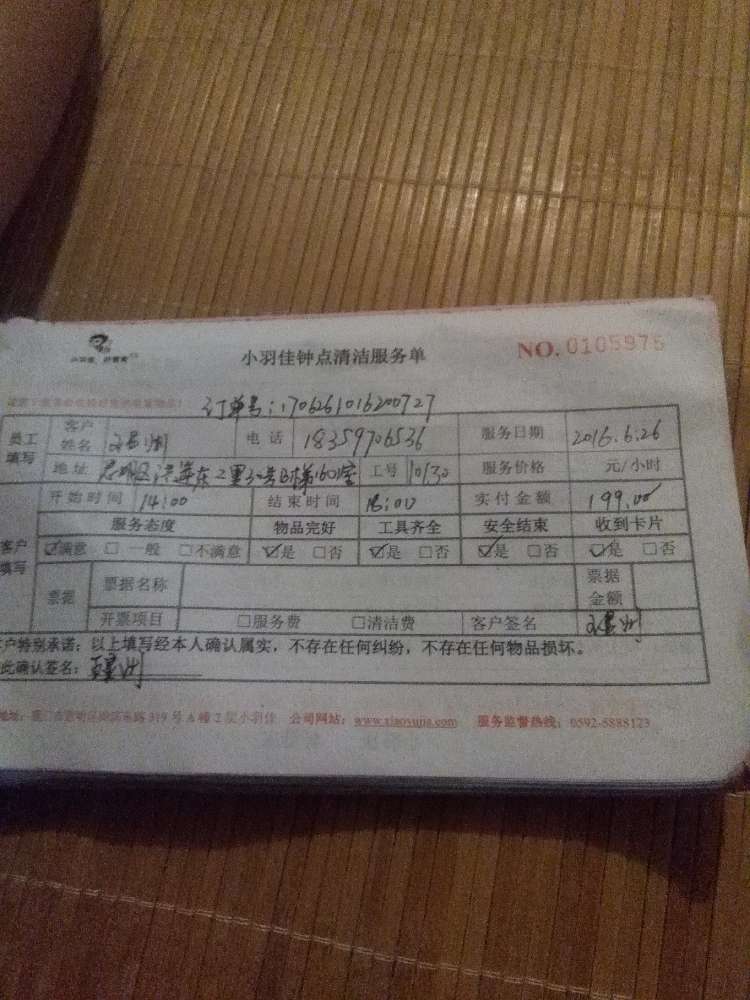 小羽佳钟点清洁服务单 NO.0105975
订单号：1706261016200727
员工填写 客户姓名 电话 18359706536 服务日期 2016.6.26
地址 工号 10130 服务价格 元/小时
开始时间 14:00 结束时间 18:00 实付金额 199.00
服务态度 物品完好 工具齐全 安全结束 收到卡片
客户填写 ☑满意 □一般 □不满意 ☑是 □否 ☑是 □否 ☑是 □否 ☑是 □否
票据 票据名称 票据金额
开票项目 □服务费 □清洁费 客户签名
客户特别承诺：以上填写经本人确认属实，不存在任何纠纷，不存在任何物品损坏。
此确认签名：
319号A幢2层小羽佳 公司网站：www.xiaoyujia.com 服务监督热线：0592-5888123